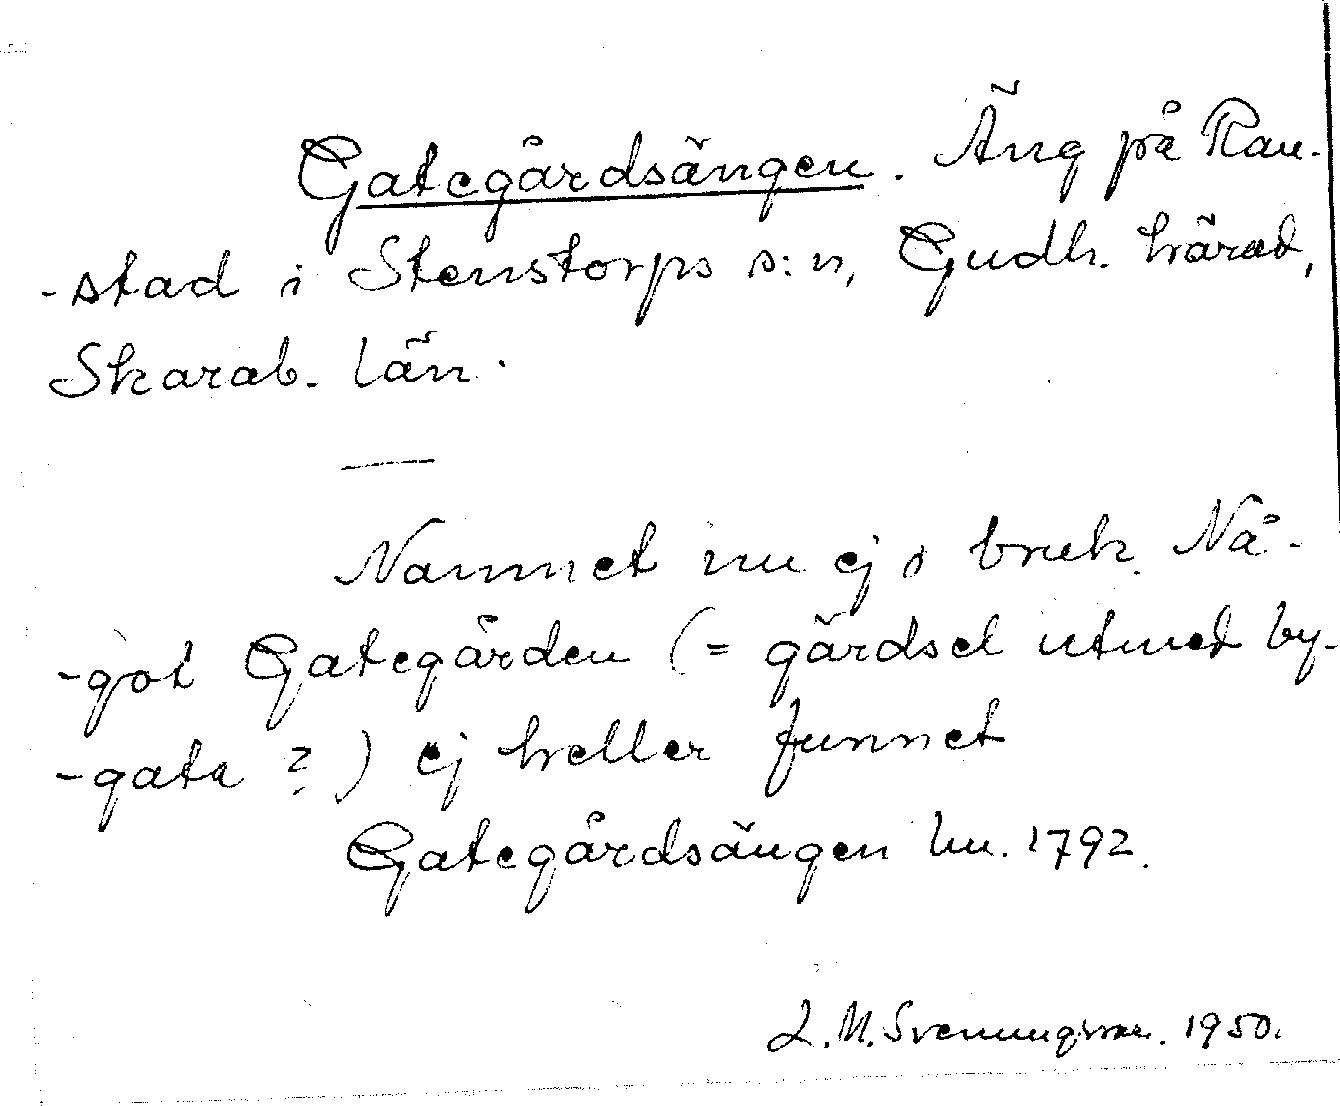 Gategårdsängen. Äng på Ran-
-stad i Stenstorps s:n, Gudh. härad,
Skarab. län.
—
Namnet nu ej i bruk. Nå-
-got Gategården (= gärdsel utmed by-
-gata ?) ej heller funnet
Gategårdsängen hu. 1792.
L.M. Svenungsson. 1950.